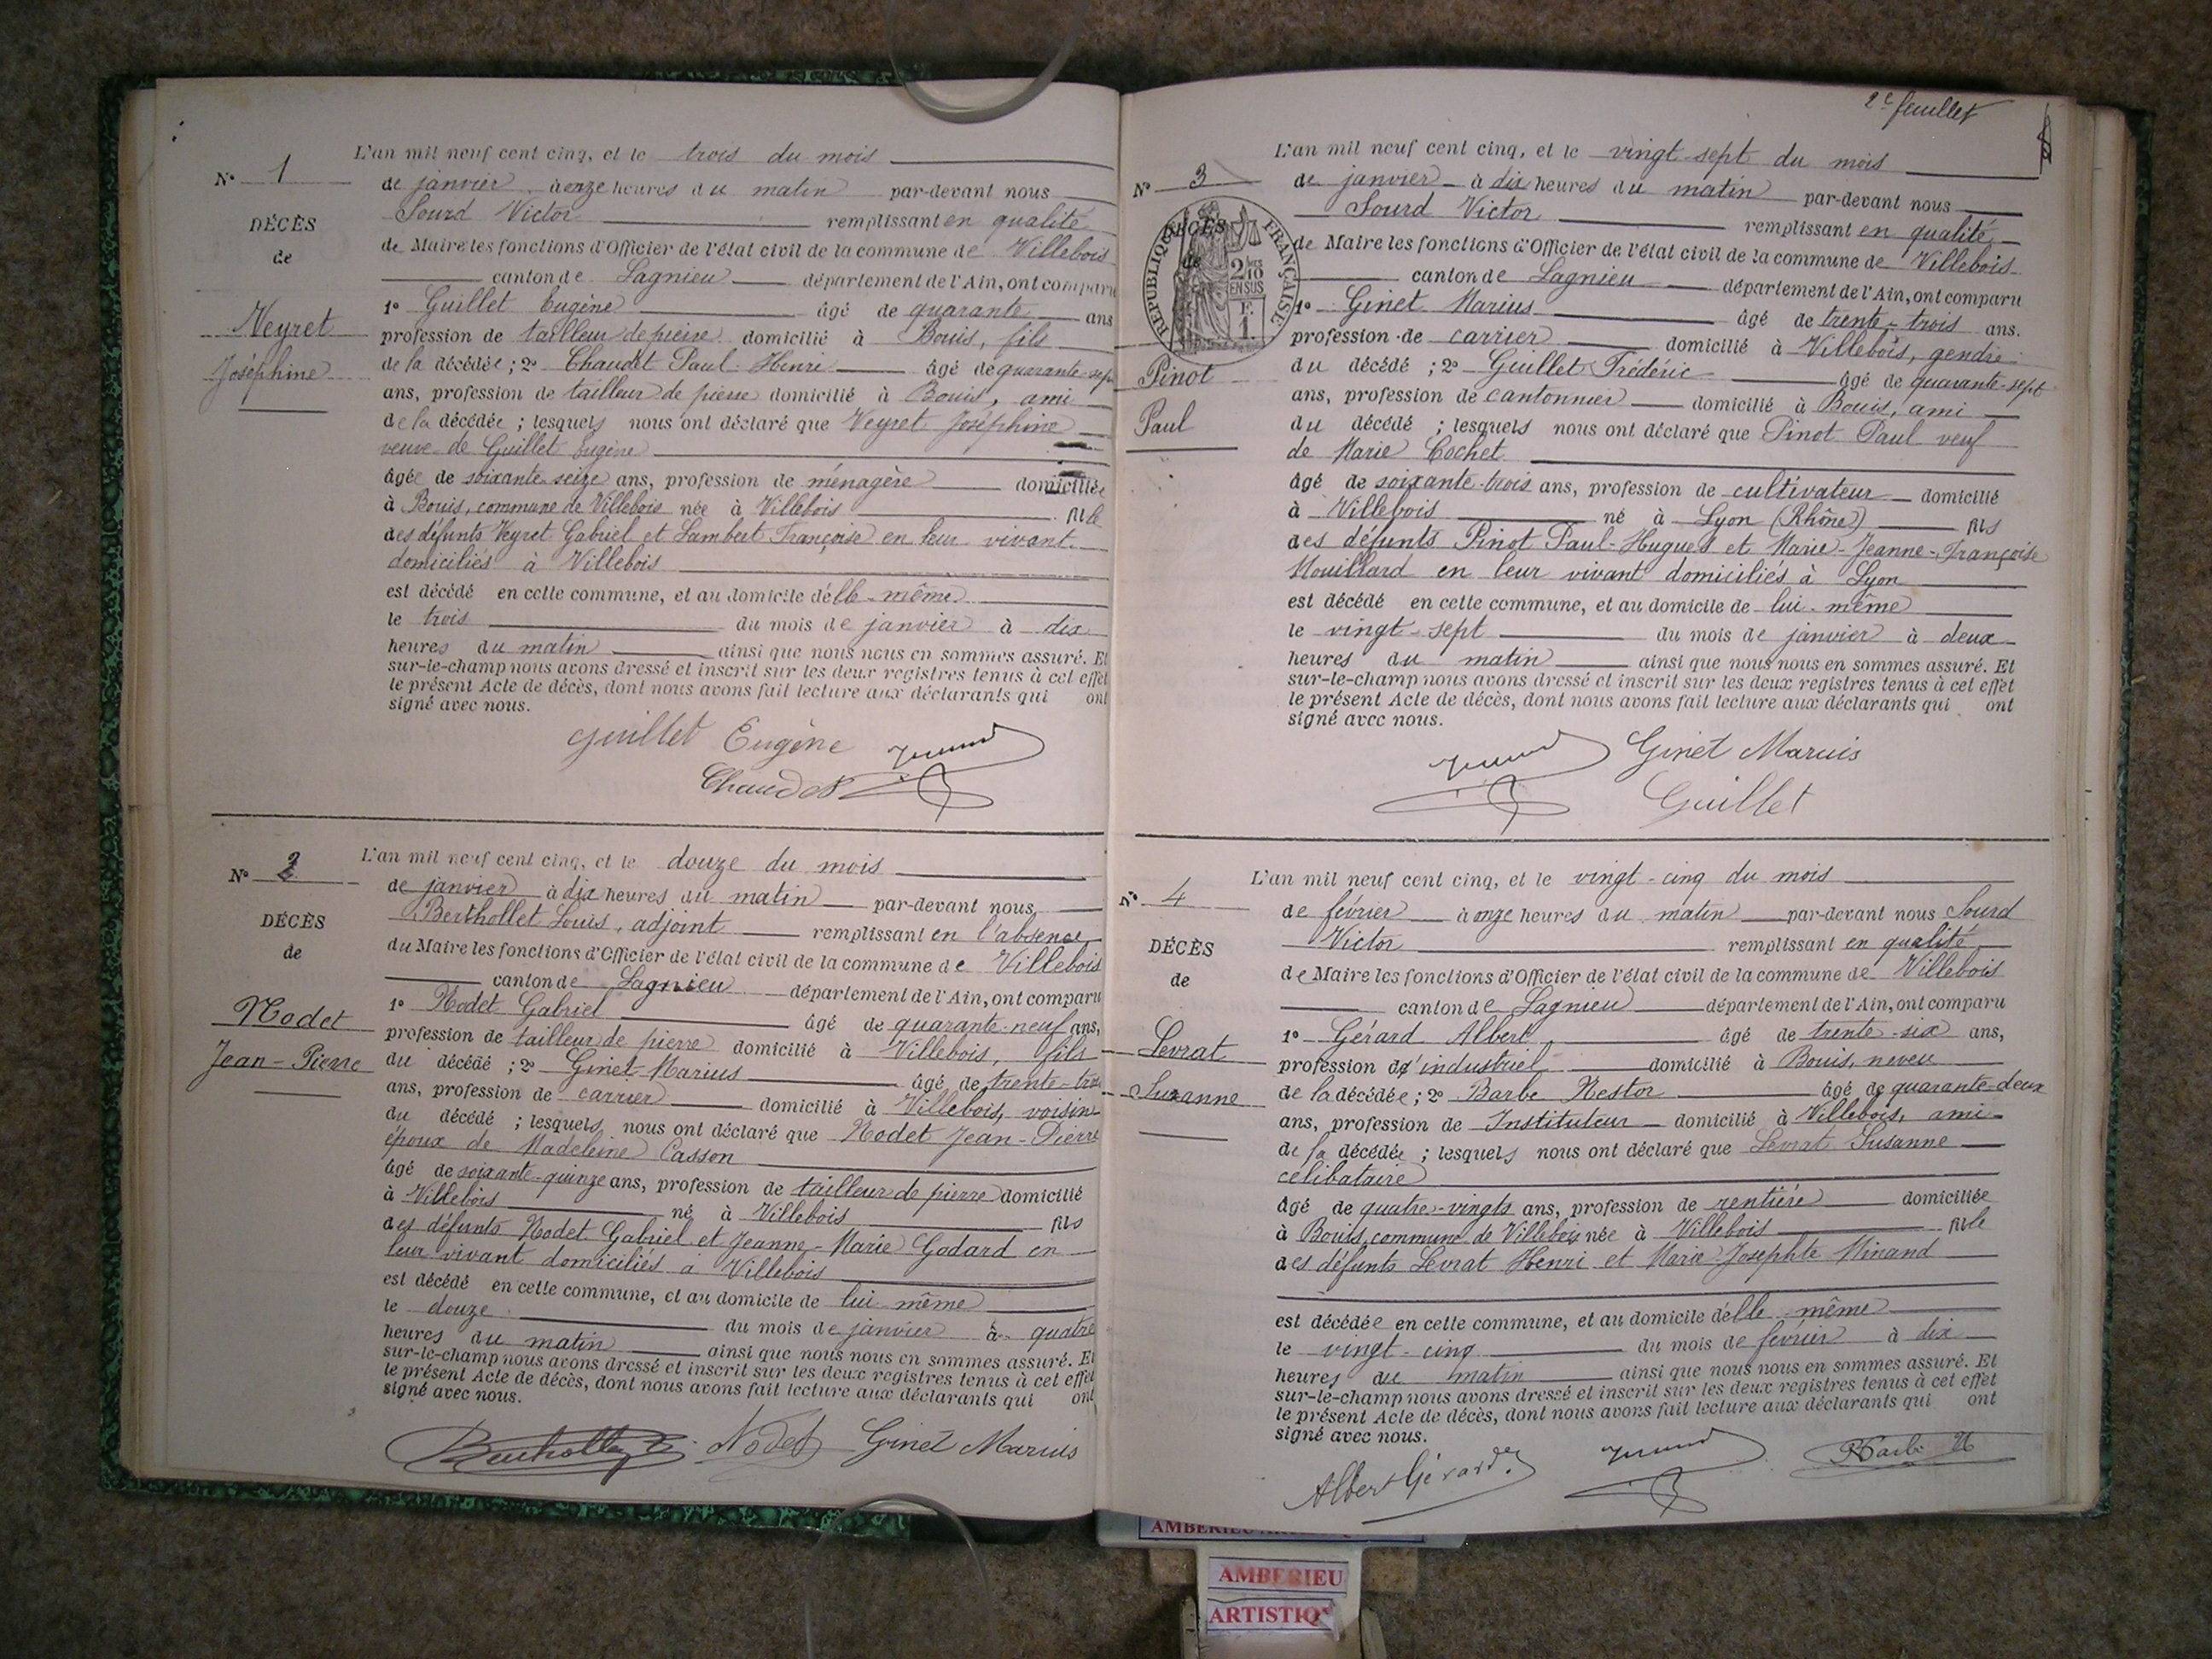 N° 1
DÉCÈS
de
Veyret
Joséphine
L'an mil neuf cent cinq, et le trois du mois
de janvier à onze heures du matin par-devant nous
Sourd Victor remplissant en qualité
de Maire les fonctions d'Officier de l'état civil de la commune de Villebois
canton de Lagnieu département de l'Ain, ont comparu
1° Guillet Eugène âgé de quarante ans
profession de tailleur de pierre domicilié à Bouis, fils
de la décédée ; 2° Chaudet Paul-Henri âgé de quarante-sept
ans, profession de tailleur de pierre domicilié à Bouis, ami
de la décédée ; lesquels nous ont déclaré que Veyret Joséphine
veuve de Guillet Eugène
âgée de soixante-seize ans, profession de ménagère domiciliée
à Bouis, commune de Villebois née à Villebois fille
des défunts Veyret Gabriel et Lambert Françoise en leur vivant
domiciliés à Villebois
est décédé en cette commune, et au domicile d'elle-même
le trois du mois de janvier à dix
heures du matin ainsi que nous nous en sommes assuré. Et
sur-le-champ nous avons dressé et inscrit sur les deux registres tenus à cet effet
le présent Acte de décès, dont nous avons fait lecture aux déclarants qui ont
signé avec nous.
Guillet Eugène
Chaudet
N° 2
DÉCÈS
de
Nodet
Jean-Pierre
L'an mil neuf cent cinq, et le douze du mois
de janvier à dix heures du matin par-devant nous
Berthollet Louis, adjoint remplissant en l'absence
du Maire les fonctions d'Officier de l'état civil de la commune de Villebois
canton de Lagnieu département de l'Ain, ont comparu
1° Nodet Gabriel âgé de quarante-neuf ans,
profession de tailleur de pierre domicilié à Villebois, fils
du décédé ; 2° Ginet Marius âgé de trente-trois
ans, profession de carrier domicilié à Villebois, voisin
du décédé ; lesquels nous ont déclaré que Nodet Jean-Pierre
époux de Madeleine Casson
âgé de soixante-quinze ans, profession de tailleur de pierre domicilié
à Villebois né à Villebois fils
des défunts Nodet Gabriel et Jeanne-Marie Godard en
leur vivant domiciliés à Villebois
est décédé en cette commune, et au domicile de lui-même
le douze du mois de janvier à quatre
heures du matin ainsi que nous nous en sommes assuré. Et
sur-le-champ nous avons dressé et inscrit sur les deux registres tenus à cet effet
le présent Acte de décès, dont nous avons fait lecture aux déclarants qui ont
signé avec nous.
Berthollet Nodet Ginet Marius
2e feuillet
N° 3
DÉCÈS
de
RÉPUBLIQUE FRANÇAISE
2/10
EN SUS
F.
1.
Pinot
Paul
L'an mil neuf cent cinq, et le vingt-sept du mois
de janvier à dix heures du matin par-devant nous
Sourd Victor remplissant en qualité
de Maire les fonctions d'Officier de l'état civil de la commune de Villebois
canton de Lagnieu département de l'Ain, ont comparu
1° Ginet Marius âgé de trente-trois ans.
profession de carrier domicilié à Villebois, gendre
du décédé ; 2° Guillet Frédéric âgé de quarante-sept
ans, profession de cantonnier domicilié à Bouis, ami
du décédé ; lesquels nous ont déclaré que Pinot Paul veuf
de Marie Cochet
âgé de soixante-trois ans, profession de cultivateur domicilié
à Villebois né à Lyon (Rhône) fils
des défunts Pinot Paul-Hugues et Marie-Jeanne-Françoise
Mouillard en leur vivant domiciliés à Lyon
est décédé en cette commune, et au domicile de lui-même
le vingt-sept du mois de janvier à deux
heures du matin ainsi que nous nous en sommes assuré. Et
sur-le-champ nous avons dressé et inscrit sur les deux registres tenus à cet effet
le présent Acte de décès, dont nous avons fait lecture aux déclarants qui ont
signé avec nous.
Ginet Marius
Guillet
N° 4
DÉCÈS
de
Levrat
Suzanne
L'an mil neuf cent cinq, et le vingt-cinq du mois
de février à onze heures du matin par-devant nous Sourd
Victor remplissant en qualité
de Maire les fonctions d'Officier de l'état civil de la commune de Villebois
canton de Lagnieu département de l'Ain, ont comparu
1° Gérard Albert âgé de trente-six ans,
profession d'industriel domicilié à Bouis, neveu
de la décédée ; 2° Barbe Nestor âgé de quarante-deux
ans, profession de Instituteur domicilié à Villebois, ami
de la décédée ; lesquels nous ont déclaré que Levrat Susanne
célibataire
âgé de quatre-vingts ans, profession de rentière domiciliée
à Bouis, commune de Villebois née à Villebois fille
des défunts Levrat Henri et Marie Josephte Minand
est décédée en cette commune, et au domicile d'elle-même
le vingt-cinq du mois de février à dix
heures du matin ainsi que nous nous en sommes assuré. Et
sur-le-champ nous avons dressé et inscrit sur les deux registres tenus à cet effet
le présent Acte de décès, dont nous avons fait lecture aux déclarants qui ont
signé avec nous.
Albert Gérard Barbe N
AMBERIEU
ARTISTIQ